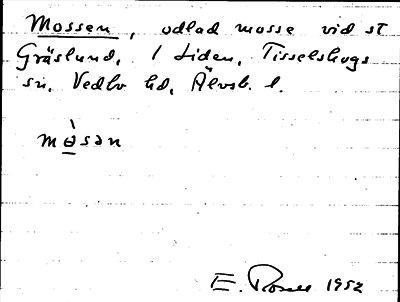 Mossen, odlad mosse vid st
Gräslund, 1 Liden, Tisselskogs
sn. Vedbo hd, Älvsb. l.
mɵ̀sən
E. Rosell 1952